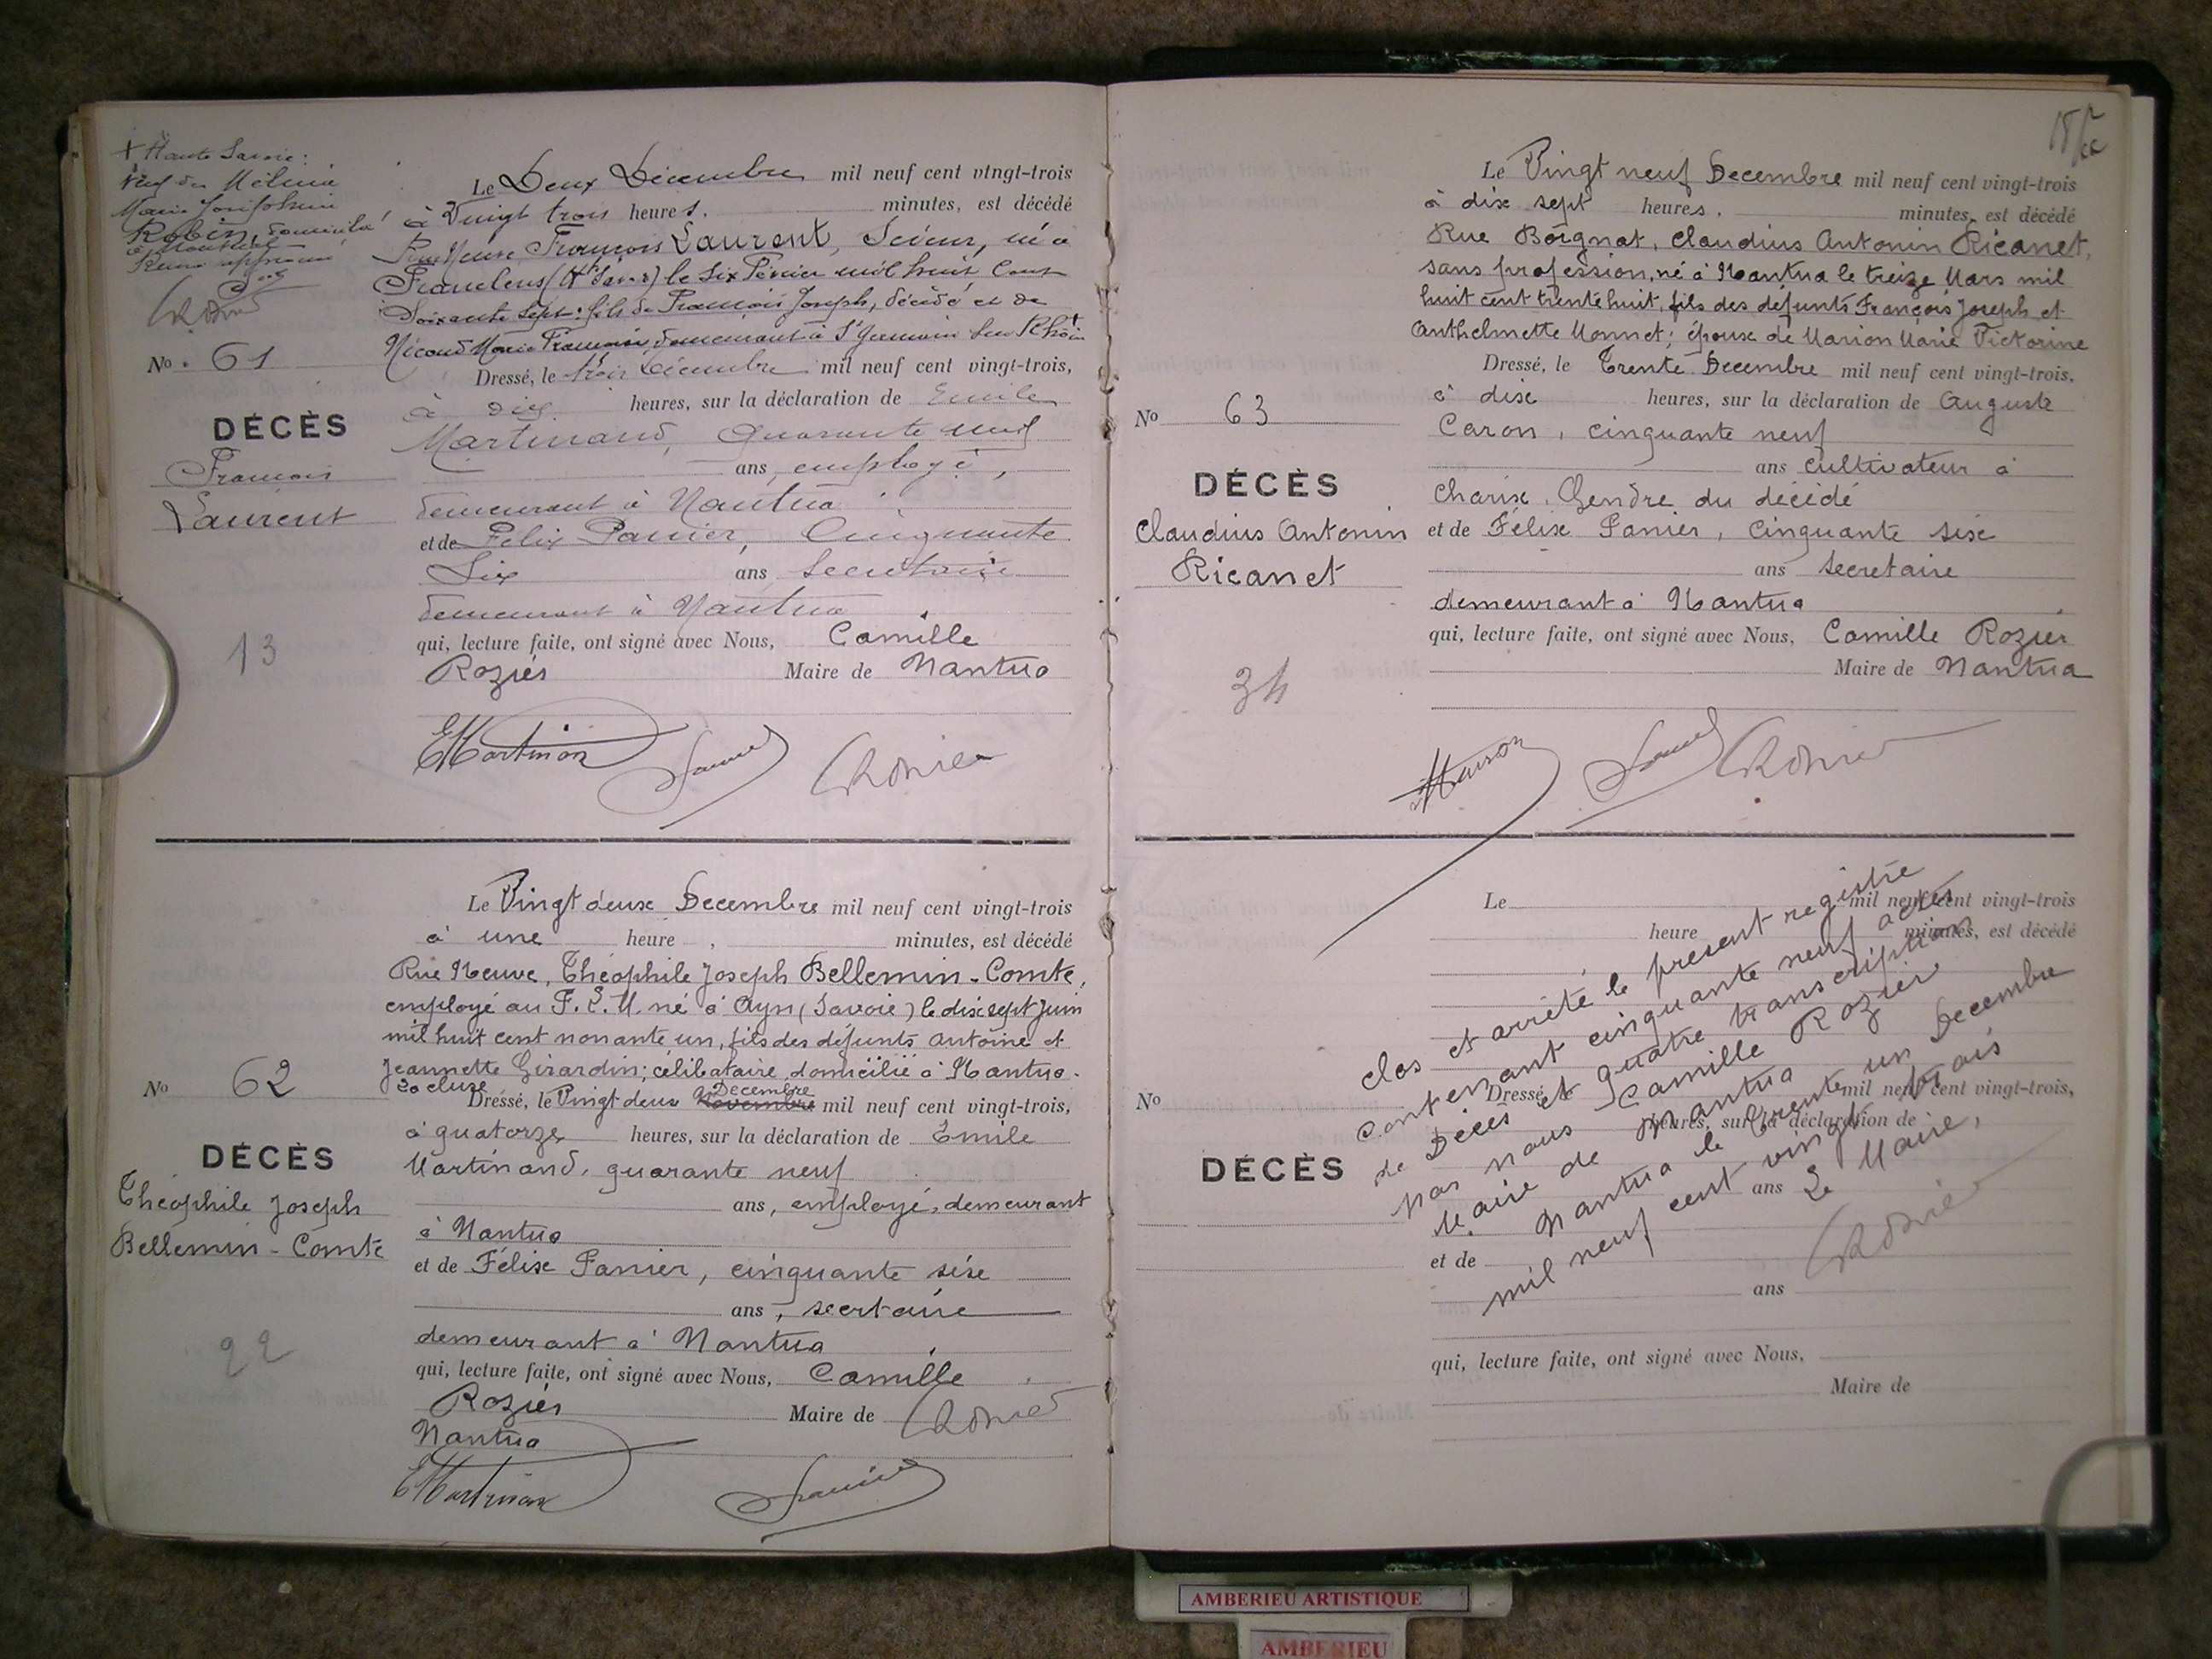 + Haute Savoie:
Marie Joséphine
Robin, domicilié
à Nantua
No. 61
DÉCÈS
François
Laurent
13
Le Deux Décembre mil neuf cent vingt-trois
à Vingt trois heures. minutes, est décédé
Rue Neuve François Laurent, Scieur, né à
Franclens (Hte Savoie) le Six Février mil huit Cent
Soixante Sept: fils de François Joseph, décédé et de
Marie Françoise, demeurant à St Germain sur Rhône +
Dressé, le trois Décembre mil neuf cent vingt-trois,
à dix heures, sur la déclaration de Emile
Martinand, Quarante neuf
ans, employé,
demeurant à Nantua
et de Félix Panier, Cinquante
Six ans Secrétaire
demeurant à Nantua
qui, lecture faite, ont signé avec Nous, Camille
Roziér Maire de Nantua
No 62
DÉCÈS
Théophile Joseph
Bellemin - Comte
22
Le Vingt deux Decembre mil neuf cent vingt-trois
à une heure , minutes, est décédé
Rue Neuve, Théophile Joseph Bellemin - Comte,
employé au né à Ayn (Savoie) le dix sept Juin
mil huit cent nonante un, fils des défunts Antoine et
Jeannette Girardin; célibataire, domicilié à Nantua.
Dressé, le Vingt deux Novembre Decembre mil neuf cent vingt-trois,
à quatorze heures, sur la déclaration de Émile
Martinand, quarante neuf
ans, employé, demeurant
à Nantua
et de Félix Panier, cinquante six
ans, secrtaire
demeurant à Nantua
qui, lecture faite, ont signé avec Nous, Camille
Roziér Maire de
Nantua
No 63
DÉCÈS
Claudius Antonin
Ricanet
34
Le Vingt neuf Decembre mil neuf cent vingt-trois
à dix sept heures, minutes, est décédé
Rue Boignat, Claudius Antonin Ricanet,
sans profession, né à Nantua le treize Mars mil
huit cent trente huit, fils des défunts François Joseph et
Anthelmette Monnet; époux de Marion Marie Victorine
Dressé, le Trente Decembre mil neuf cent vingt-trois,
à dix heures, sur la déclaration de Auguste
Caron, cinquante neuf
ans cultivateur à
Charix, Gendre du décédé
et de Félix Panier, Cinquante six
ans secretaire
demeurant à Nantua
qui, lecture faite, ont signé avec Nous, Camille Roziér
Maire de Nantua
No
DÉCÈS
Le mil neuf cent vingt-trois
heure minutes, est décédé
Dressé, le mil neuf cent vingt-trois,
heures, sur la déclaration de
ans
et de
ans
qui, lecture faite, ont signé avec Nous,
Maire de
Clos et arrêté le present registre
contenant cinquante neuf actes
de Décès et quatre transcription
par nous Camille Rozier
Maire de Nantua
Nantua le Trente un Decembre
mil neuf cent vingt trois
Le Maire,
AMBERIEU ARTISTIQUE
AMBERIEU